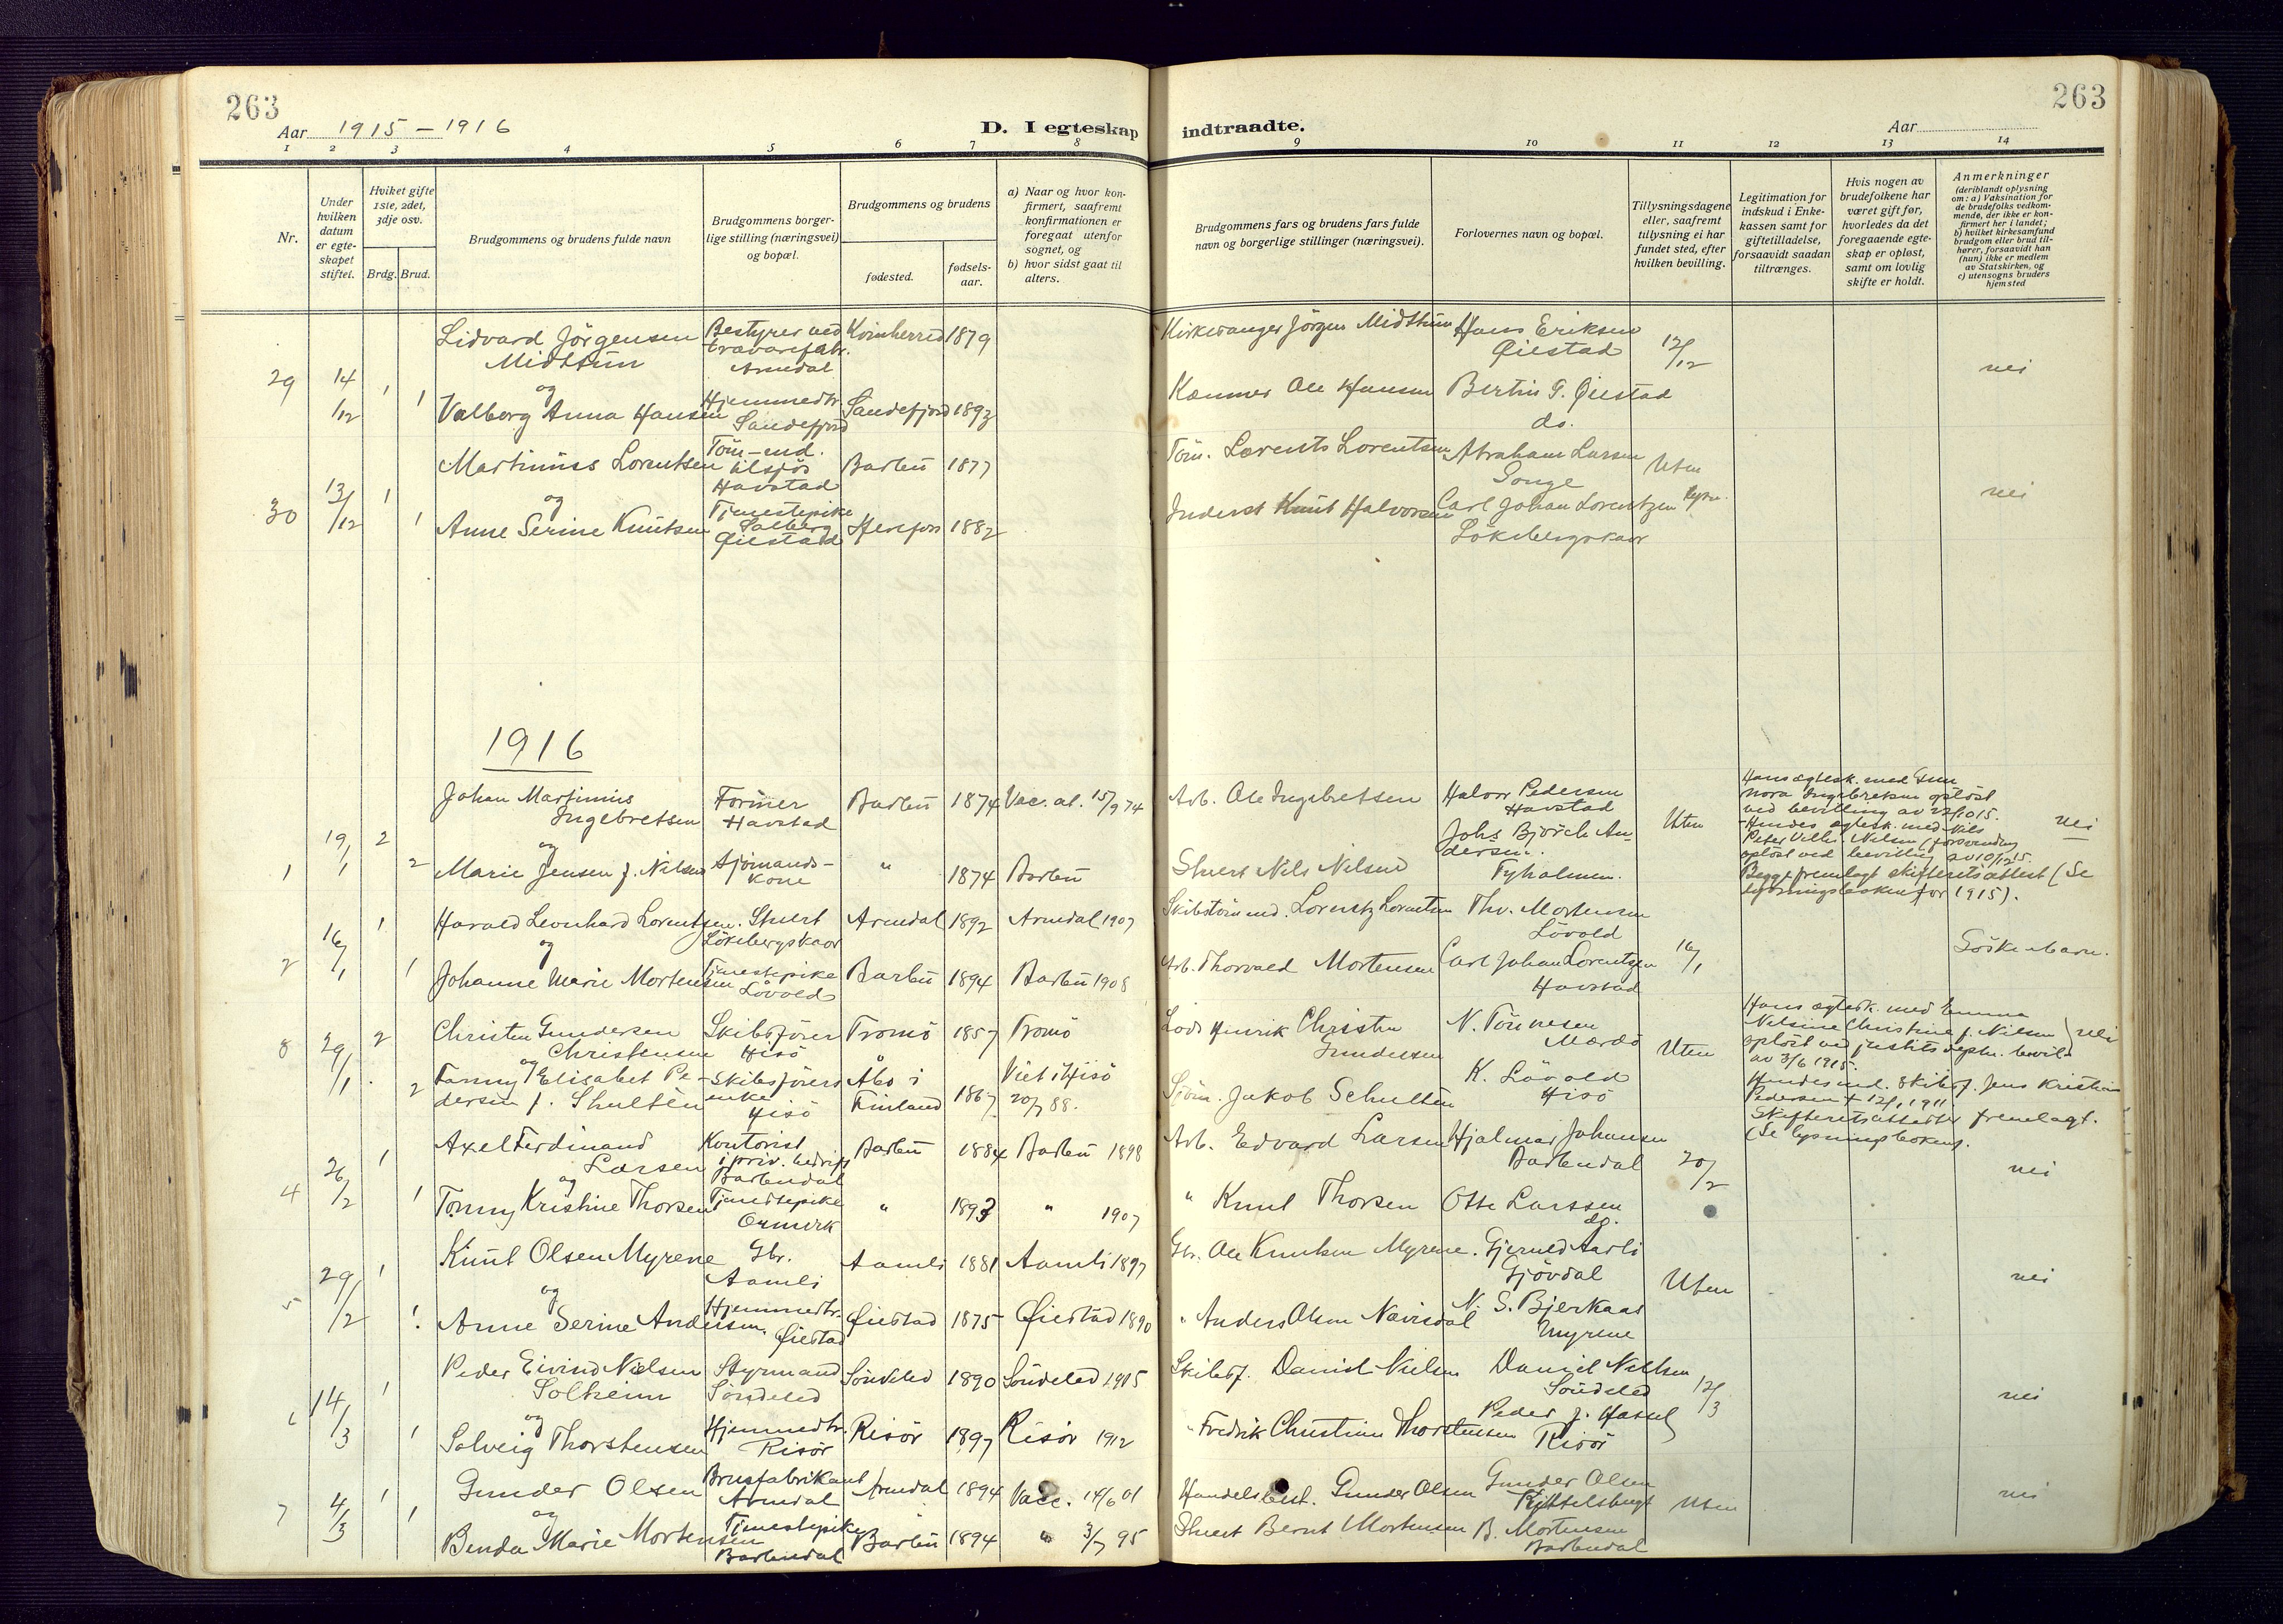 263
263
Aar 1915 – 1916
D. I egteskap indtraadte.
Aar
1 2 3 4 5 6 7 8 9 10 11 12 13 14
Nr.
Under hvilken datum er egteskapet stiftet.
Hviket gifte 1ste, 2det, 3dje osv.
Brdg. Brud.
Brudgommens og brudens fulde navn
Brudgommens borgerlige stilling (næringsvei) og bopæl.
Brudgommens og brudens
fødested.
fødselsaar.
a) Naar og hvor konfirmert, saafremt konfirmationen er foregaat utenfor sognet, og
b) hvor sidst gaat til alters.
Brudgommens fars og brudens fars fulde navn og borgerlige stillinger (næringsvei).
Forlovernes navn og bopæl.
Tillysningsdagene eller, saafremt tillysning ei har fundet sted, efter hvilken bevilling.
Legitimation for indskud i Enkekassen samt for giftetilladelse, forsaavidt saadan tiltrænges.
Hvis nogen av brudefolkene har været gift før, hvorledes da det foregaaende egteskap er opløst, samt om lovlig skifte er holdt.
Anmerkninger
(deriblandt oplysning om: a) Vaksination for de brudefolks vedkommende, der ikke er konfirmert her i landet;
b) hvilket kirkesamfund brudgom eller brud tilhører, forsaavidt han (hun) ikke er medlem av Statskirken, og
c) utensogns bruders hjemsted
29 14/12 1 Lidvard Jörgensen Midttun Bestyrer ved travarefabr. Arendal Kvinherred 1879 Kirkesanger Jörgen Midttun Hans Eriksen Øiestad 12/12 nei
og
1 Valborg Anna Hansen Hjemmedtr. Sandefjord Sandefjord 1893 Kæmner Ole Hansen Bertin G. Øiestad do.
30 13/12 1 Martinius Lorentsen Töm-md. tilsjös Havstad Barbu 1877 Töm. Lorents Lorentsen Abraham Larsen Songe Uten lysn. nei
og
1 Anne Serine Knutsen Tjenestepike Solberg Øiestad Herefoss 1882 Inderst Knut Halvorsen Carl Johan Lorentzen Löksbergskaar
1916
1 19/1 2 Johan Martinius Ingebretsen Former Havstad Barbu 1874 Vac. at. 15/9 74 Arb. Ole Ingebretsen Halvor Pedersen Havstad Uten nei
Hans egtesk. med Gunnora Ingebretsen oplöst ved bevilling av 22/10 15.
og
2 Marie Jensen f. Nilsen Sjömandskone " 1874 Barbu Stuert Nils Nilsen Johs Bjorch Andersen. Tyholmen.
Hendes egtesk. med Nils Peter Vilh. Nilsen (forsvunden) oplöst ved bevilling av 10/12 15.
Begge fremlagt skifteretsattest (Se lysningsboken for 1915).
2 16/1 1 Harald Leonhard Lorentsen. Stuert Löksbergskaar Arendal 1892 Arendal 1907 Skibstömmd. Lorentz Lorentsen Thv. Mortensen Lövold 16/1 Söskenbarn.
og
1 Johanne Marie Mortensen Tjenestepike Lövold Barbu 1894 Barbu 1908 Arb. Thorvald Mortensen Carl Johan Lorentzen Havstad
8 29/1 2 Christen Gundersen Christensen Skibsförer Hisö Tromö 1857 Tromö Lods Henrik Christen Gundersen N. Tönnesen Merdö Uten nei
Hans egtesk. med Emma Nilsine Christine f. Nilsen oplöst ved justitsdeptm. bevil. av 3/6 1915.
og
2 Fanny Elisabet Pedersen f. Shultén Skibsförers enke Hisö Åbo i Finland 1867 Viet i Hisö 20/7 88. Sjöm. Jakob Schultén K. Lövold Hisö
Hendes md. Skibsf. Jens Kristian Pedersen + 12/1 1911
Skifteretsattester fremlagt. (Se lysningsboken).
4 26/2 1 Axel Ferdinand Larsen Kontorist i priv. bedrift Barbudal Barbu 1884 Barbu 1898 Arb. Edvard Larsen Hjalmar Johansen Barbudal 20/2 nei
og
1 Tonny Kristine Thorsen Tjenestepike " 1893 " 1907 " Knut Thorsen Otto Larssen do.
5 29/2 1 Knut Olsen Myrene Gbr. Aamli Aamli 1881 Aamli 1897 Gbr. Ole Knutsen Myrene. Gjeruld Aasli Gjövdal Uten nei
og
1 Anne Serine Andersen. Hjemmedtr. Øiestad Øiestad 1875 Øiestad 1890 " Anders Olsen Navisdal N. S. Bjerkaas Myrene
6 14/3 1 Peder Eivind Nielsen Solheim Styrmand Söndeled Söndeled 1890 Söndeled 1905 Skibsf. Daniel Nielsen Daniel Nielsen Söndeled 12/3 nei
og
1 Solveig Thorstensen Hjemmedtr. Risör Risör 1897 Risör 1912 " Fredrik Christian Thorstensen Peder J. Hassel Risör
7 4/3 1 Gunder Olsen Brusfabrikant Arendal Arendal 1894 Vacc. 14/6 01 Handelsbest. Gunder Olsen Gunder Olsen Kittelsbugt Uten nei
og
1 Benda Marie Mortensen Tjenestepike Barbudal Barbu 1894 " 3/7 95 Stuert Bernt Mortensen B. Mortensen Barbudal